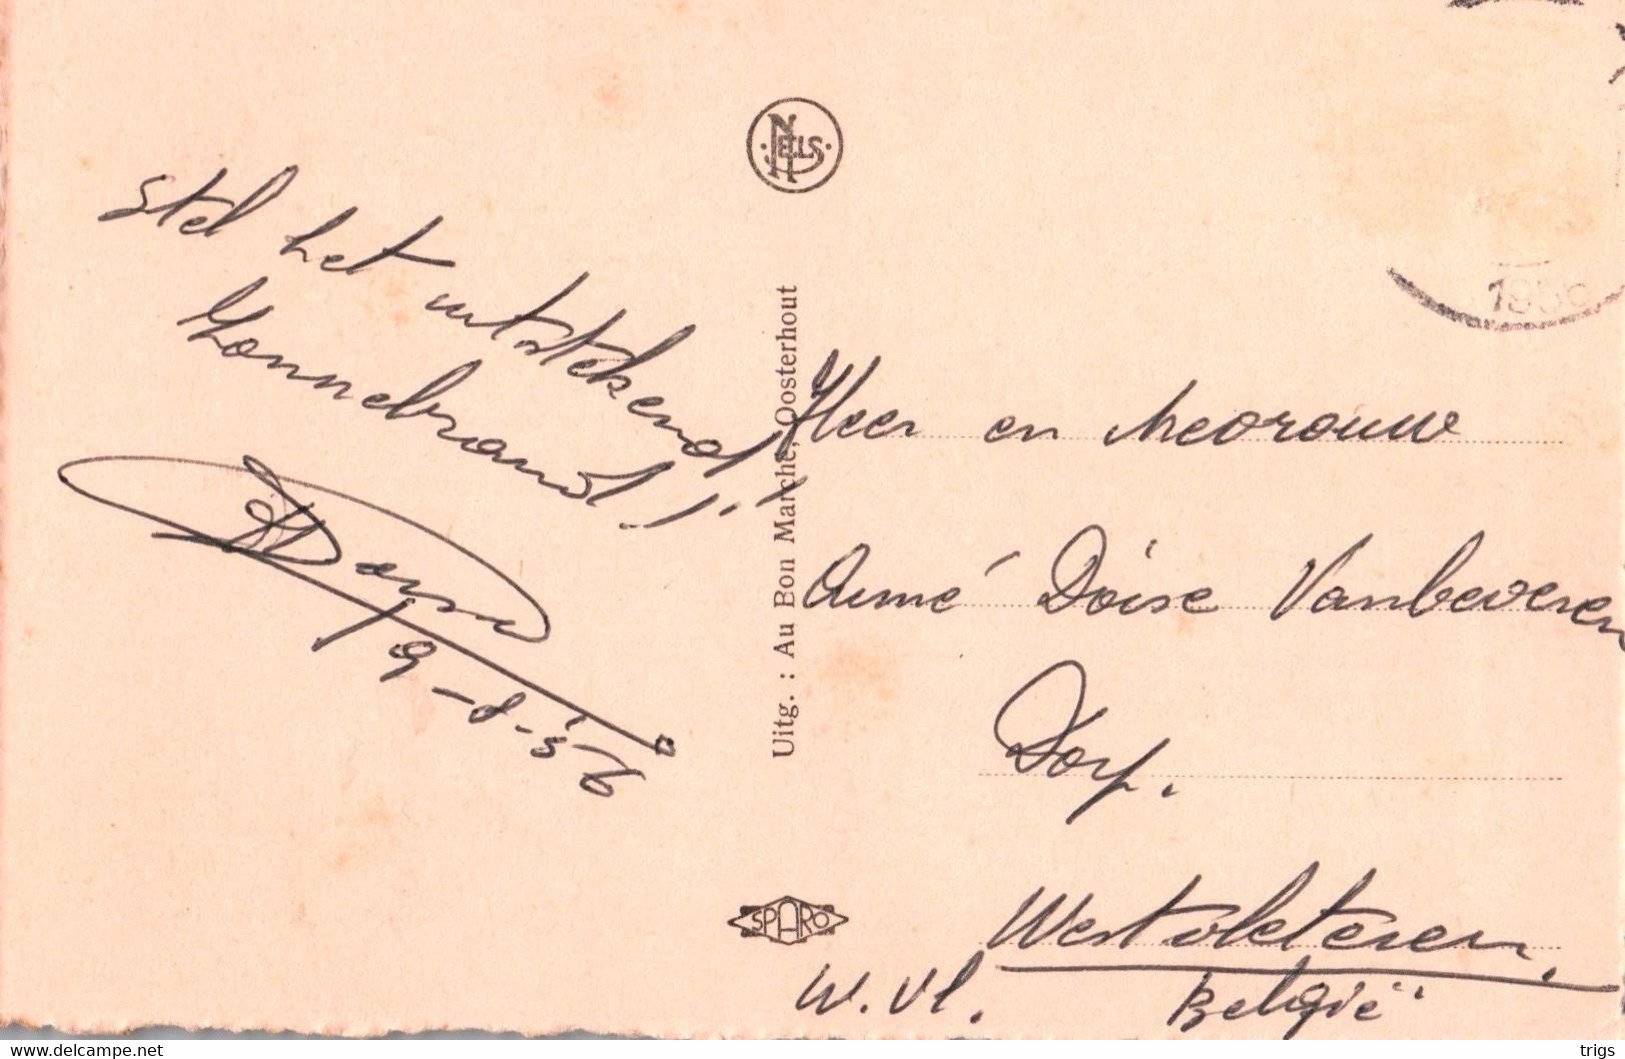 Stel het uitstekend!
Zonnebrand!
9-8-'56
NELS
Uitg. : Au Bon Marché, Oosterhout
SPARO
1956
Heer en Mevrouw
Aimé Doise Vanbeveren
Dorp.
Westvleteren.
W. Vl. België
www.delcampe.net
trigs